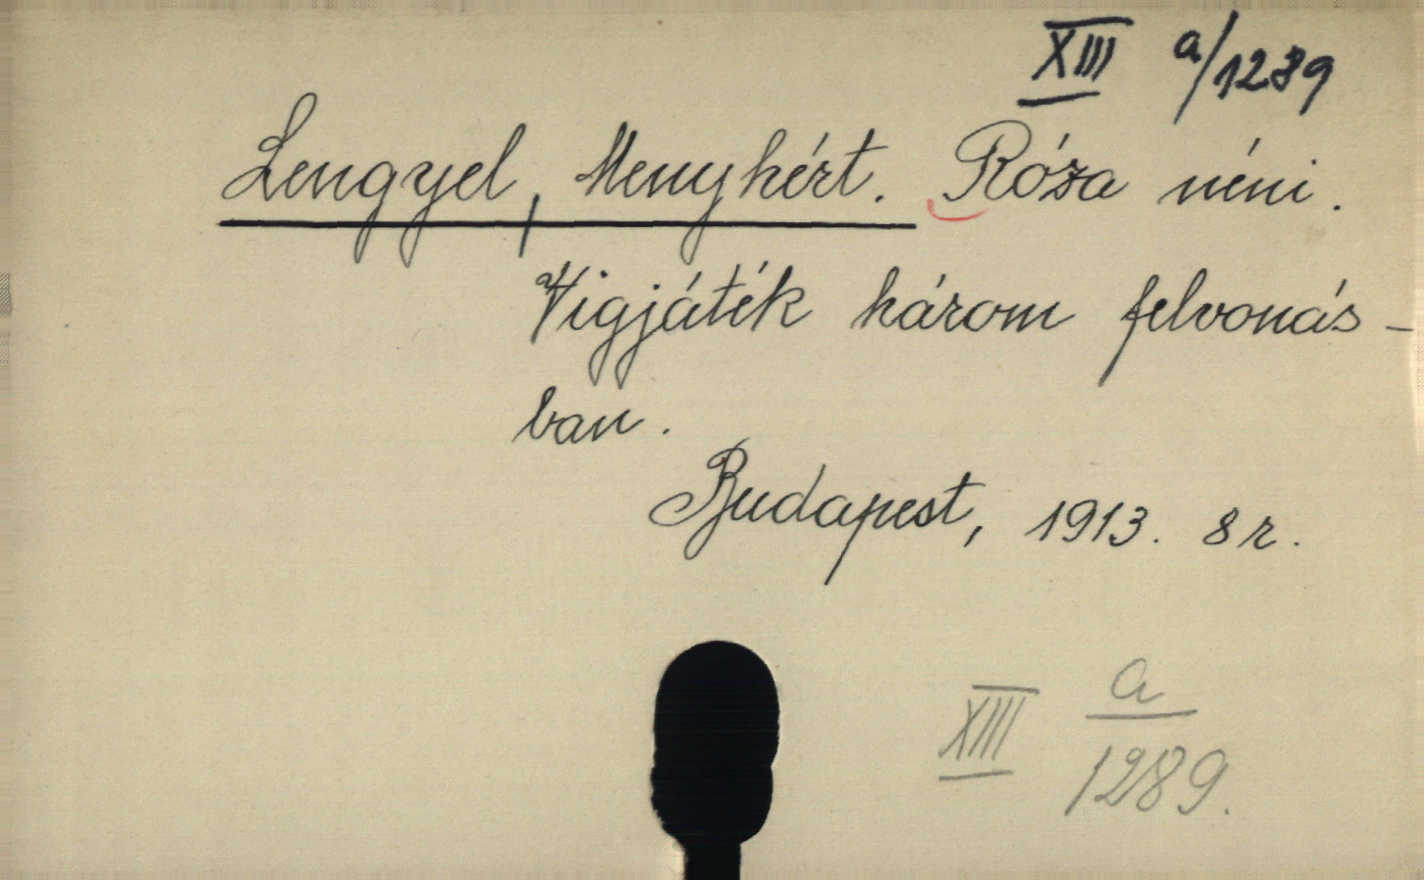 XIII a/1289
Lengyel, Menyhért. Róza néni.
Vigjáték három felvonás-
ban.
Budapest, 1913. 8r.
XIII a
1289.